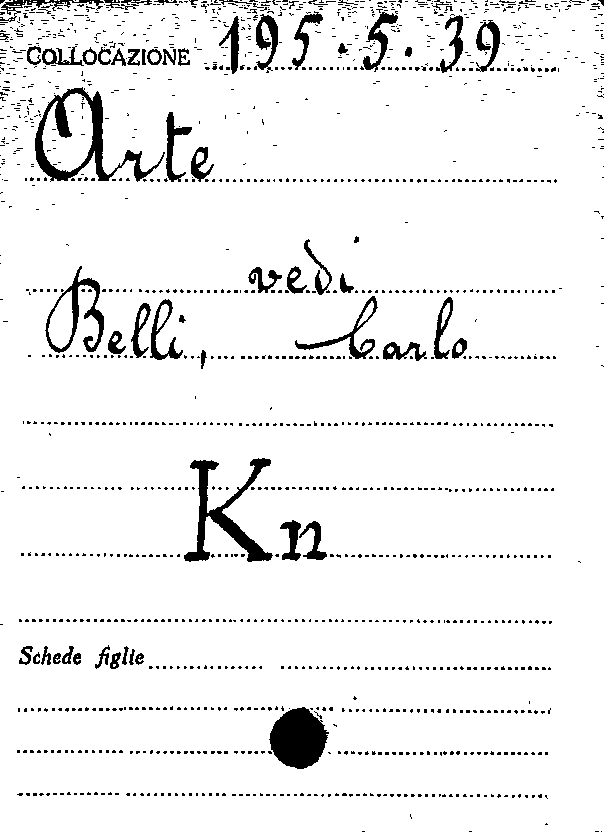 COLLOCAZIONE 195.5.39
Arte
vedi
Belli, Carlo
Kn
Schede figlie